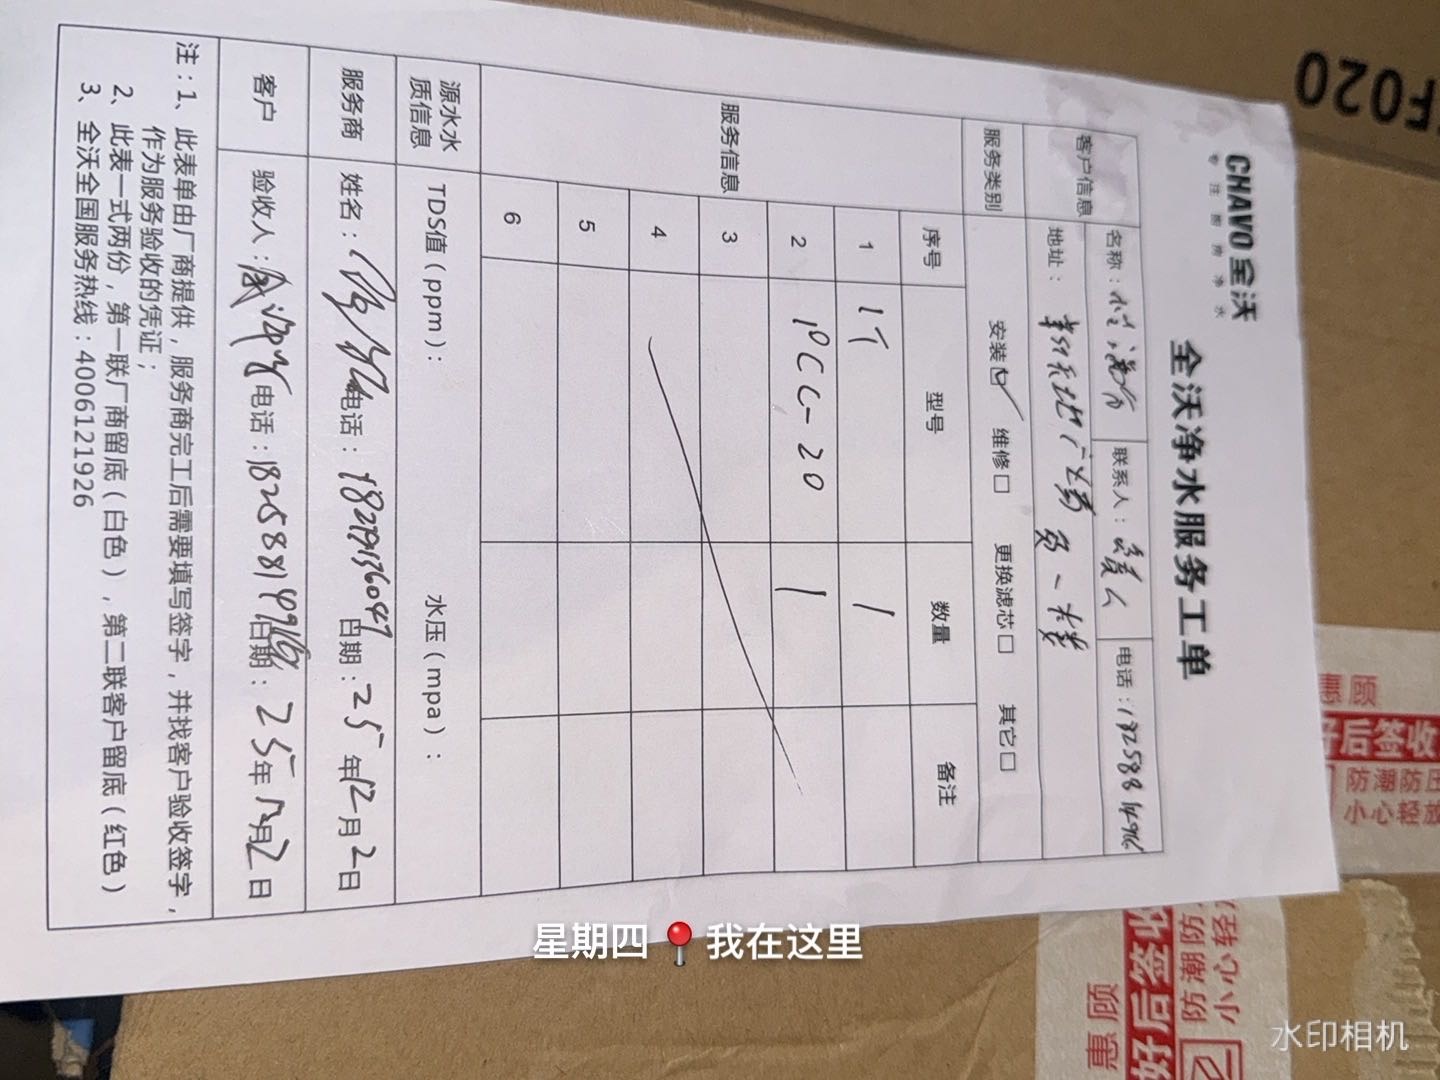 CHAVO全沃
专注厨房净水
全沃净水服务工单
客户信息 名称: 联系人: 电话:
地址:
服务类别 安装☑ 维修□ 更换滤芯□ 其它□
服务信息 序号 型号 数量 备注
1 1
2 10CC-20 1
3
4
5
6
源水水质信息 TDS值(ppm): 水压(mpa):
服务商 姓名: 电话: 日期:25年12月2日
客户 验收人: 电话: 日期:25年12月2日
注:1、此表单由厂商提供,服务商完工后需要填写签字,并找客户验收签字,
作为服务验收的凭证;
2、此表一式两份,第一联厂商留底(白色),第二联客户留底(红色)
3、全沃全国服务热线:4006121926
F020
惠顾
好后签收
防潮防压
小心轻放
惠顾
好后签收
防潮防
小心轻
星期四📍我在这里
水印相机